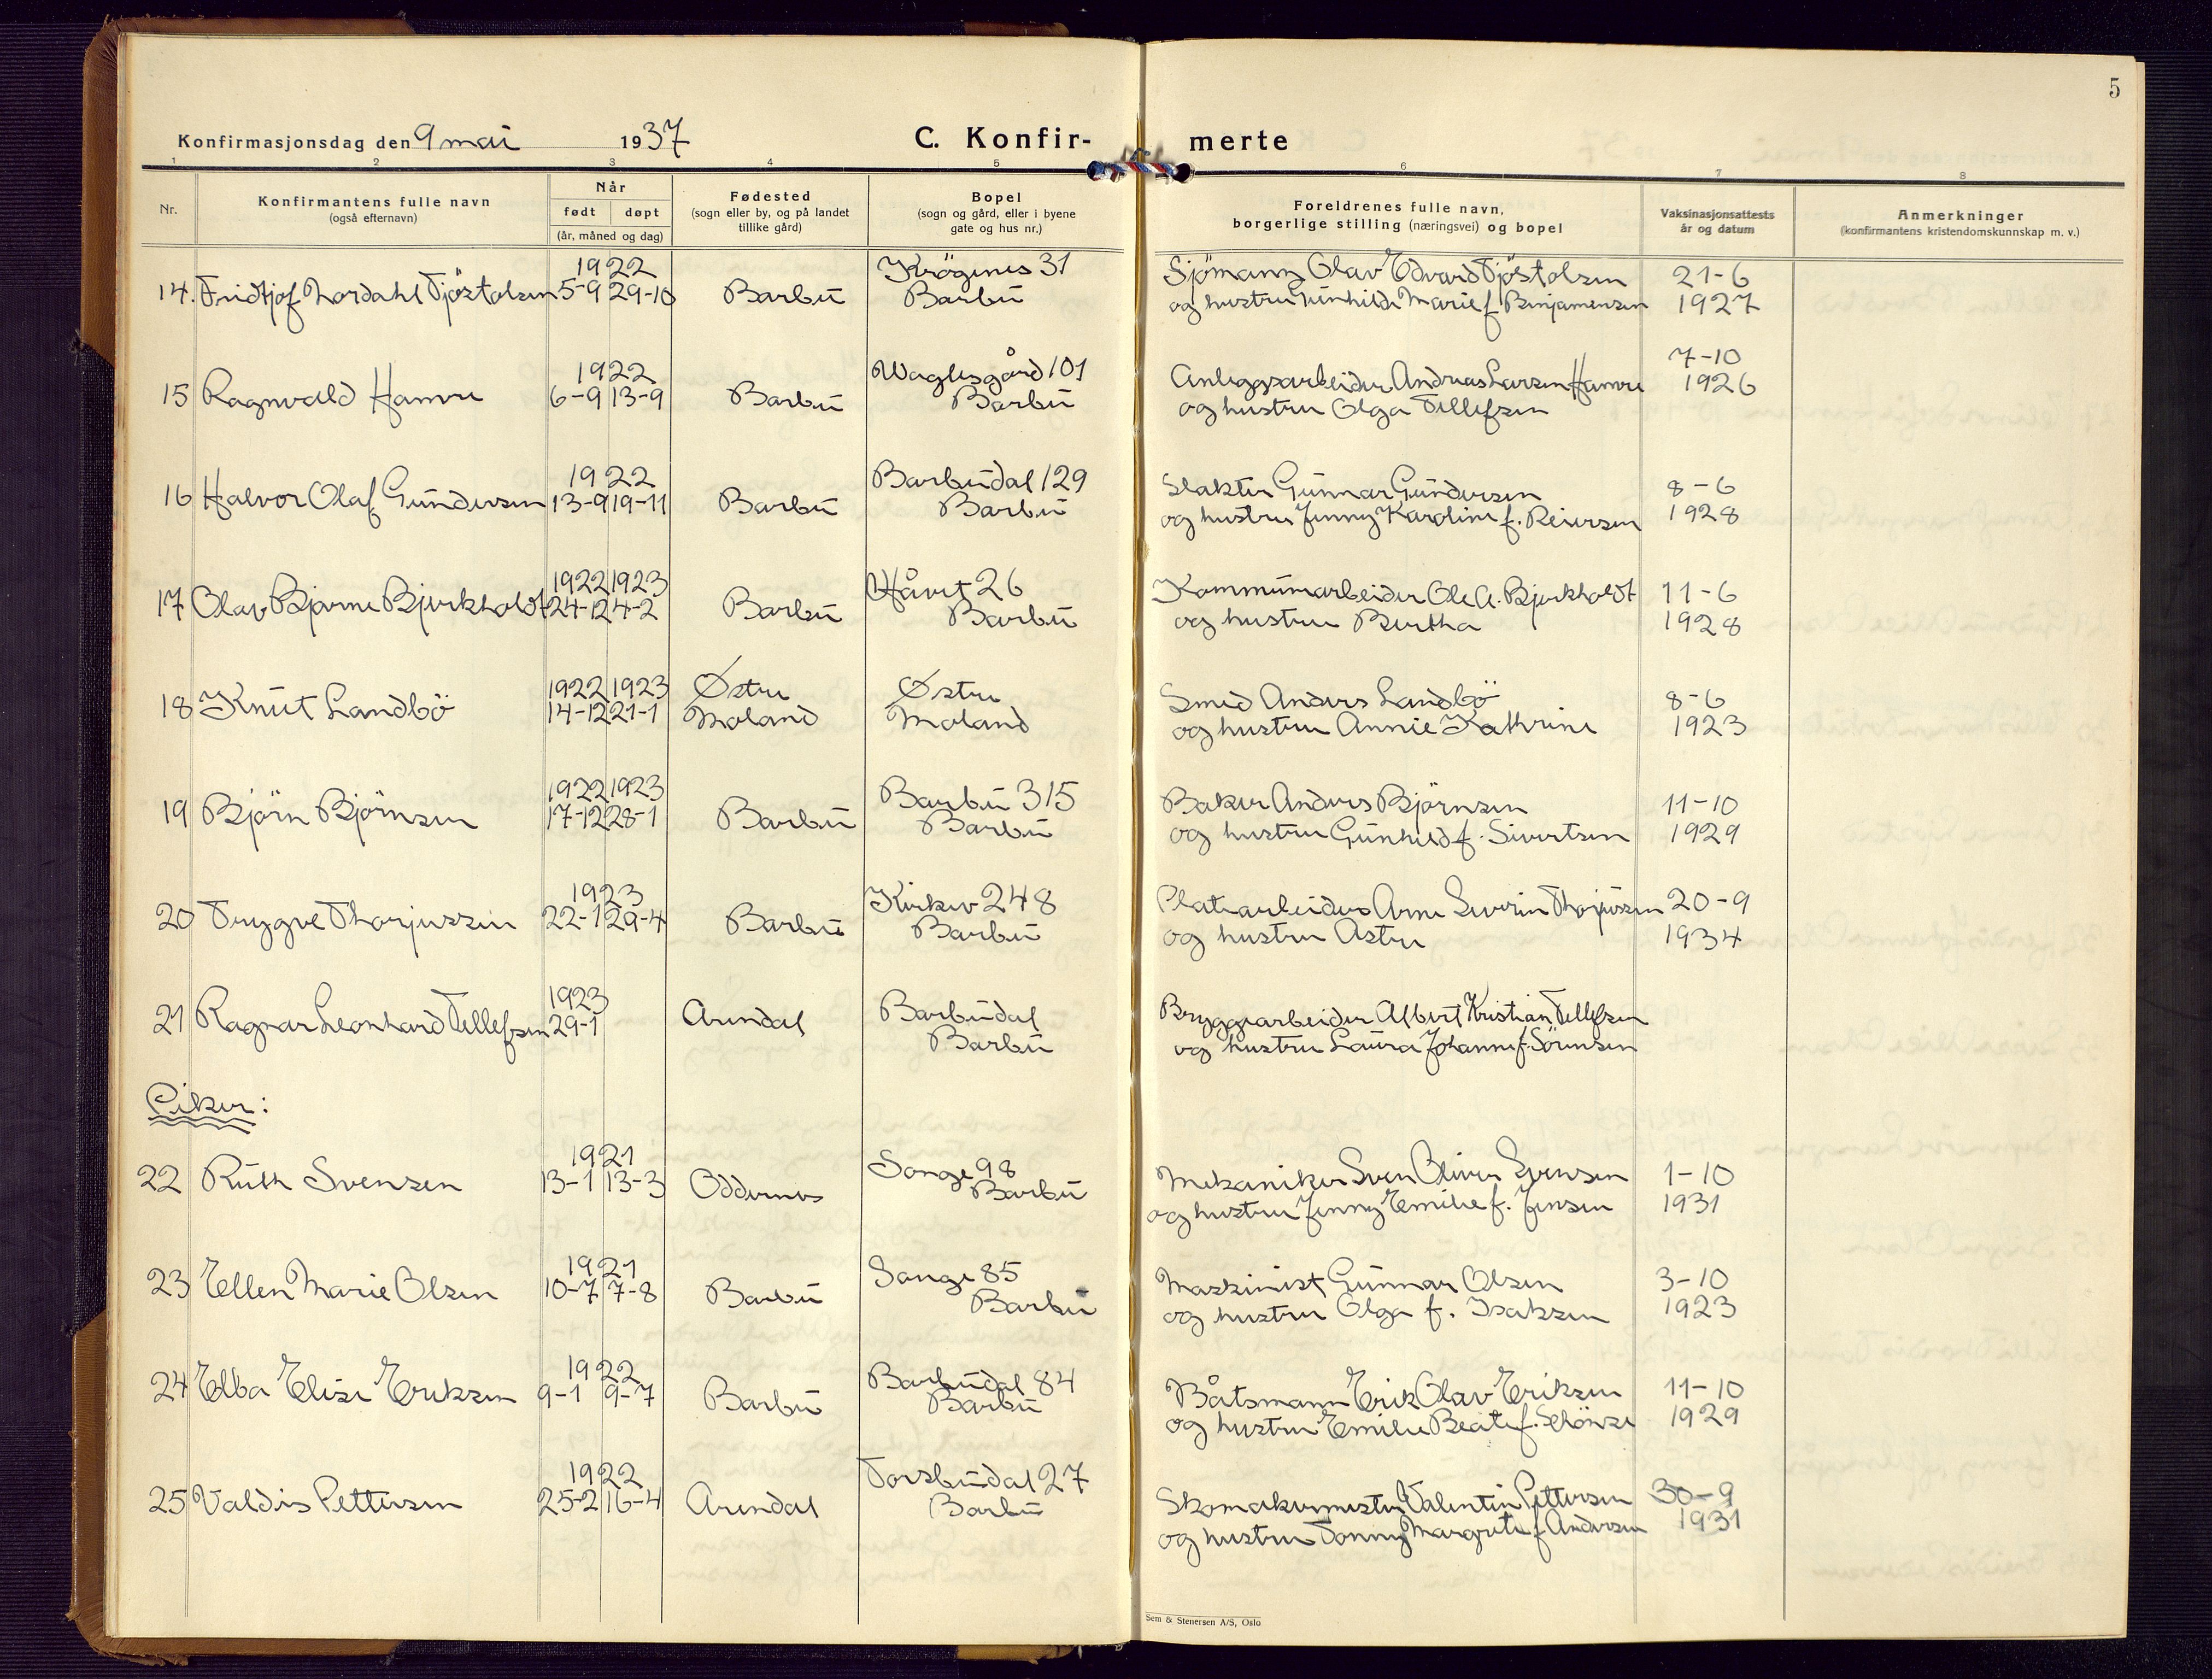 5
Konfirmasjonsdag den 9 mai 1937
C. Konfir-merte
1 2 3 4 5 6 7 8
Nr.
Konfirmantens fulle navn
(også efternavn)
Når
født døpt
(år, måned og dag)
Fødested
(sogn eller by, og på landet
tillike gård)
Bopel
(sogn og gård, eller i byene
gate og hus nr.)
Foreldrenes fulle navn,
borgerlige stilling (næringsvei) og bopel
Vaksinasjonsattests
år og datum
Anmerkninger
(konfirmantens kristendomskunnskap m. v.)
1922 Krøgenes 31 Sjömann Olav Edvard Tjöstolsen 21-6
14. Fridtjof Nordahl Tjöstolsen 5-9 29-10 Barbu Barbu og hustru Gunhilde Marie f. Benjamensen 1927
1922 Waglesgård 101 Anleggsarbeider Andreas Larsen Hamre 7-10
15 Ragnvald Hamre 6-9 13-9 Barbu Barbu og hustru Olga Tellefsen 1926
1922 Barbudal 129 Slakter Gunnar Gundersen 8-6
16 Halvor Olaf Gundersen 13-9 19-11 Barbu Barbu og hustru Jenny Karoline f. Reiersen 1928
1922 1923 Håvet 26 Kommunearbeider Ole A. Bjerkholdt 11-6
17 Olav Bjarne Bjerkholdt 24-12 4-2 Barbu Barbu og hustru Bertha 1928
1922 1923 Østre Østre Smed Anders Landbö 8-6
18 Knut Landbö 14-12 21-1 Moland Moland og hustru Annie Kathrine 1923
1922 1923 Barbu 315 Baker Anders Björnsen 11-10
19 Björn Björnsen 17-12 28-1 Barbu Barbu og hustru Gunhild f. Sivertsen 1929
1923 Kirkev 248 Platearbeider Arne Severin Thorjussen 20-9
20 Trygve Thorjussen 22-1 29-4 Barbu Barbu og hustru Astri 1934
1923 Barbudal Bryggearbeider Albert Kristian Tellefsen
21 Ragnar Leonhard Tellefsen 29-1 Arendal Barbu og hustru Laura Johanne f. Sörensen
Piker:
1921 Songe 98 Mekaniker Sven Oliver Svensen 1-10
22 Ruth Svensen 13-1 13-3 Oddernes Barbu og hustru Jenny Emilie f. Jensen 1931
1921 Songe 85 Maskinist Gunnar Olsen 3-10
23 Ellen Marie Olsen 10-7 7-8 Barbu Barbu og hustru Olga f. Isaksen 1923
1922 Barbudal 84 Båtsmann Erik Olav Eriksen 11-10
24 Elba Elise Eriksen 9-1 9-7 Barbu Barbu og hustru Emilie Beate f. 1929
1922 Torsbudal 27 Skomakermester Valentin Pettersen 30-9
25 Valdis Pettersen 25-2 16-4 Arendal Barbu og hustru Tonny Margrete f Andersen 1931
Sem & Stenersen A/S, Oslo